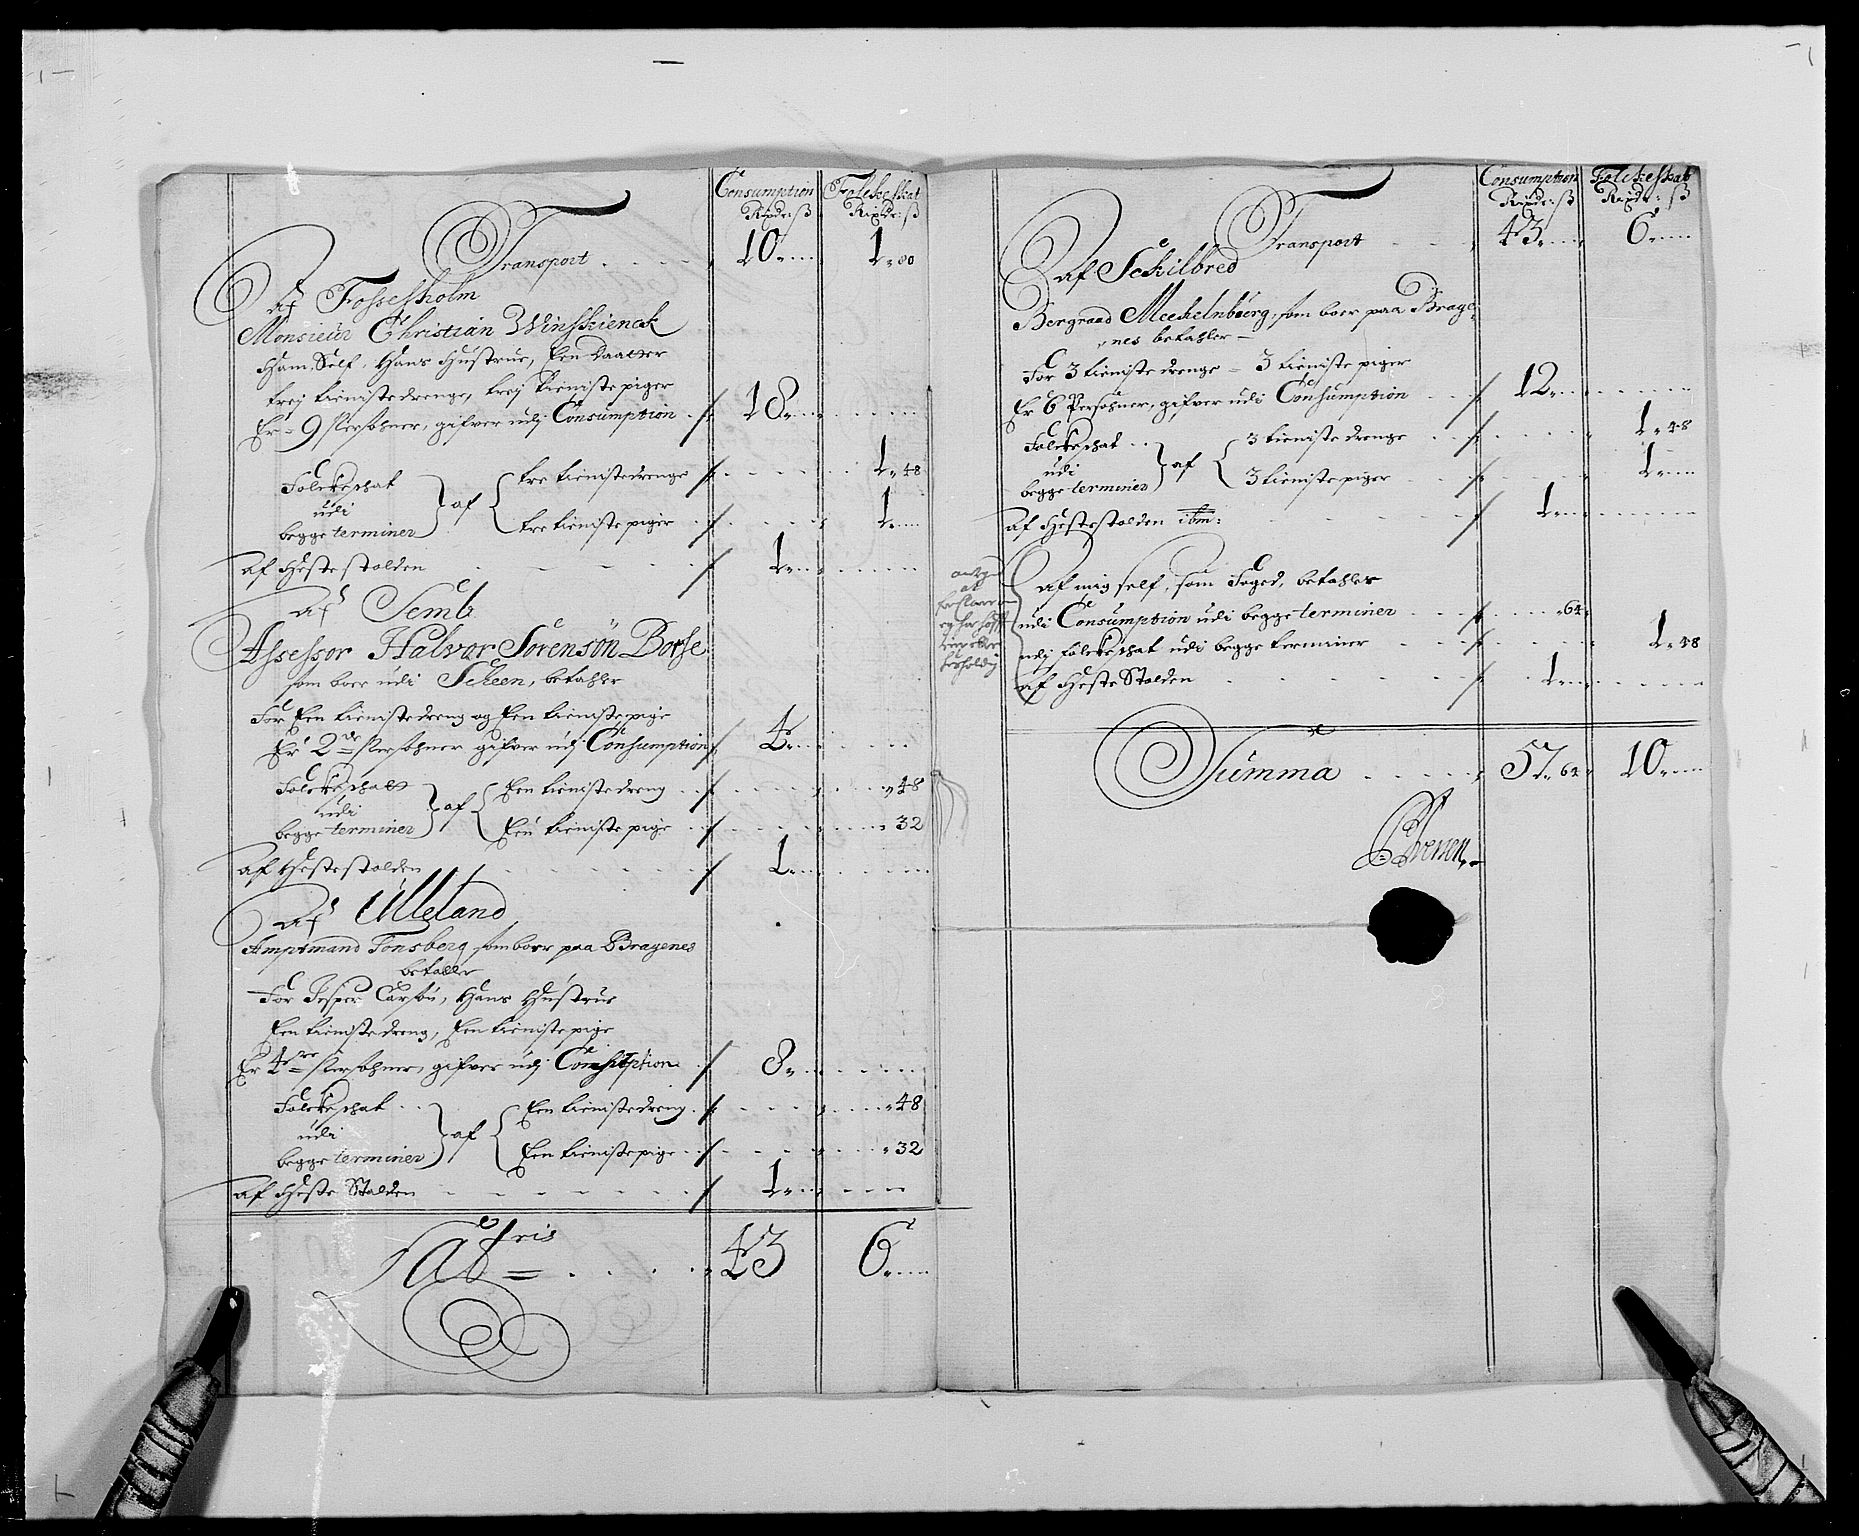 Consumption Folckeskat
Rixdr: ß Rixdr: ß
Transport 10 1 80
Af Fossesholm
Monsieur Christian Winshienck
Ham Self, Hans Hustrue, Een Daatter
trej tienistedrenge, trej tieniste piger
Er 9 Persohner, gifver udj Consumption 18
Folckeschat
udi
begge terminer
af
tre tienistedrenge 1 48
tre tieniste piger 1
Af Hestestalden 1
Af Semb
Assessor Halvor Sörensön Borse
som boer udi Scheen, betahler
For Een tienistedreng og Een tienistepige
Er 2de Persohner gifver udj Consumption 4
Folckeschatt
udi
begge terminer
af
Een tienistedreng 48
Een tieniste pige 32
Af Hestestalden 1
Af Ulleland
Amptmand Tonsberg, som boer paa Bragenes
betaller
For Jesper Carsön, Hans Hustrue
Een tienistedreng, Een tienistepige
Er 4re Persohner, gifver udj Consumption 8
Folckeschat
udi
begge terminer
af
Een tienistedreng 48
Een tienistepige 32
Af Heste Stalden 1
Latris 43 6
Consumption Folckeskat
Rixdr: ß Rixdr: ß
Transport 43 6
Af Schilbred
Bergraad Mechelnborg, som boer paa Brage-
nes betahler
For 3 tienistedrenge - 3 tieniste piger
Er 6 Persohner, gifver udi Consumption 12
Folckeschat
udi
begge terminer
af
3 tieniste drenge 1 48
3 tieniste piger 1
Af Hestestalden ibm: 1
Af mig self, som Foged, betahler
udi Consumption udi begge terminer 64
udj folckeschat udi begge terminer 1 48
Af Heste Stalden 1
Summa 57 64 10